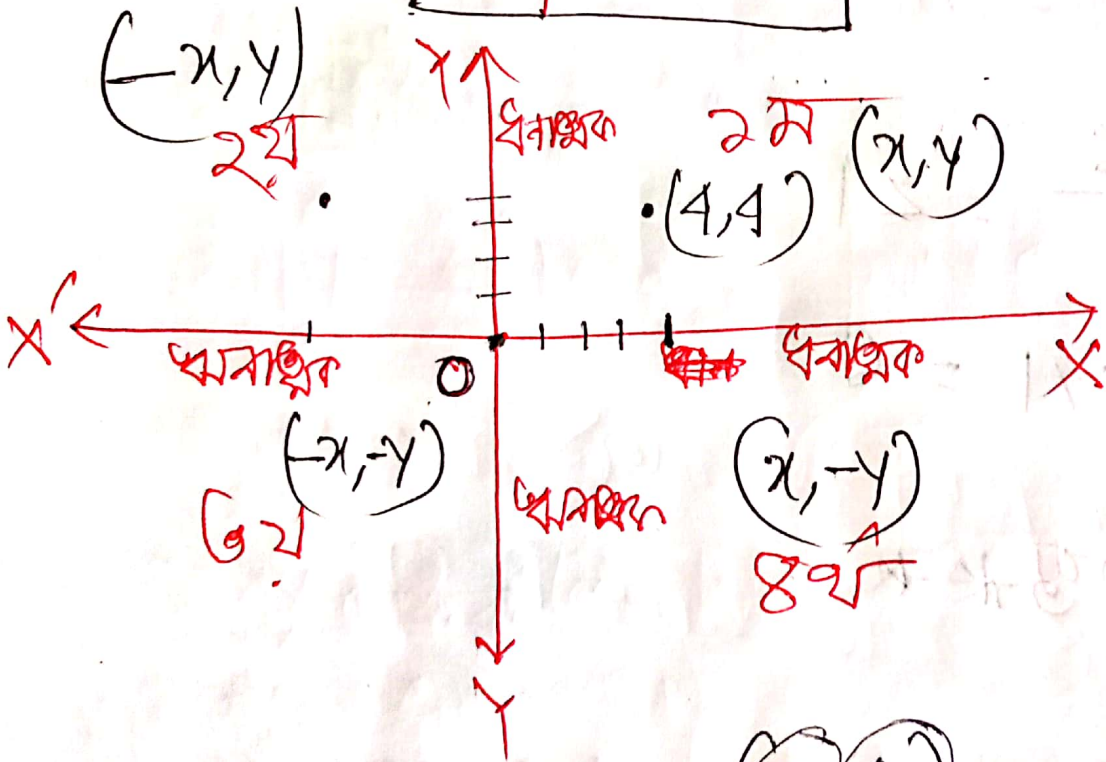 (-x, y)
২য়
Y
ধনাত্মক
১ম
(x, y)
(4,4)
X'
ঋনাত্মক
O
ধনাত্মক
X
(-x, -y)
৩য়
ঋনাত্মক
(x, -y)
৪র্থ
Y